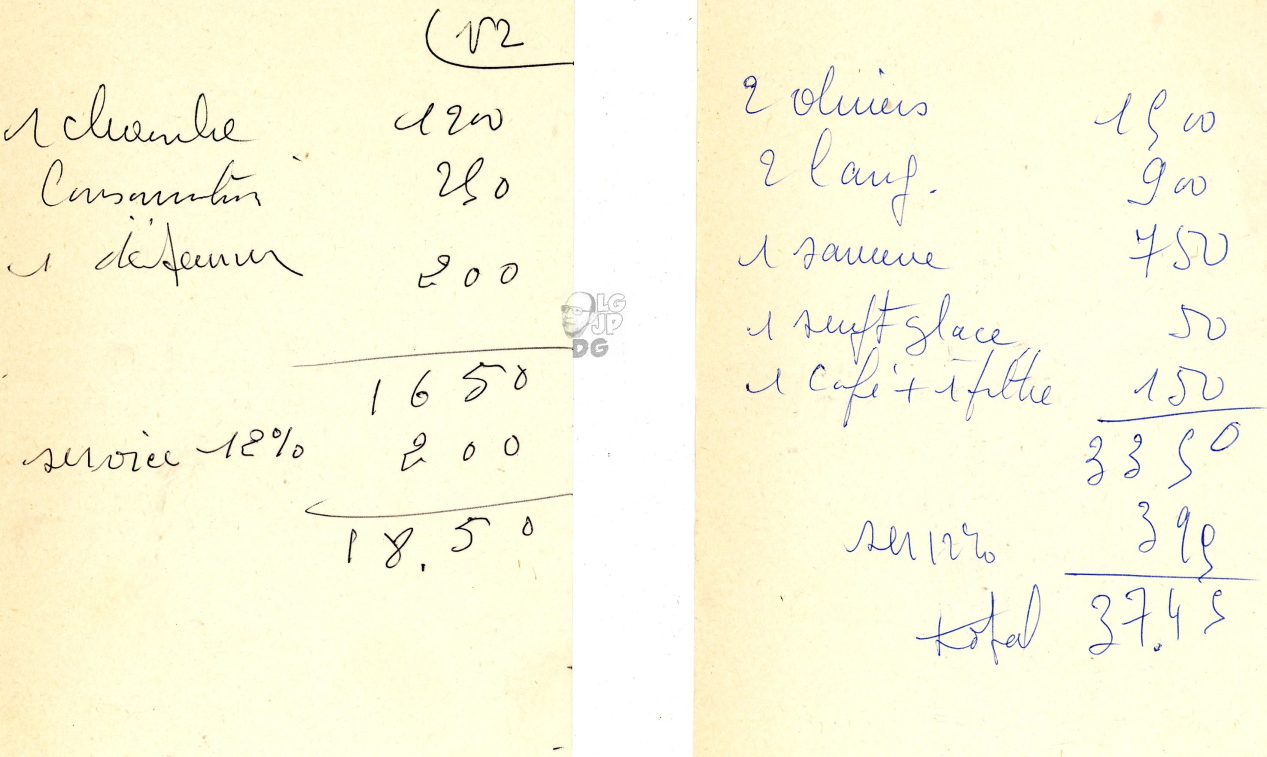 12
1 chambre 1200
Consommation 250
1 déjeuner 200
1650
service 12% 200
18.50
LG
JP
DG
2 dîners 1500
2 lang. 900
1 750
1 glace 50
1 Café + 1 filtre 150
3350
ser 12% 395
total 37.45